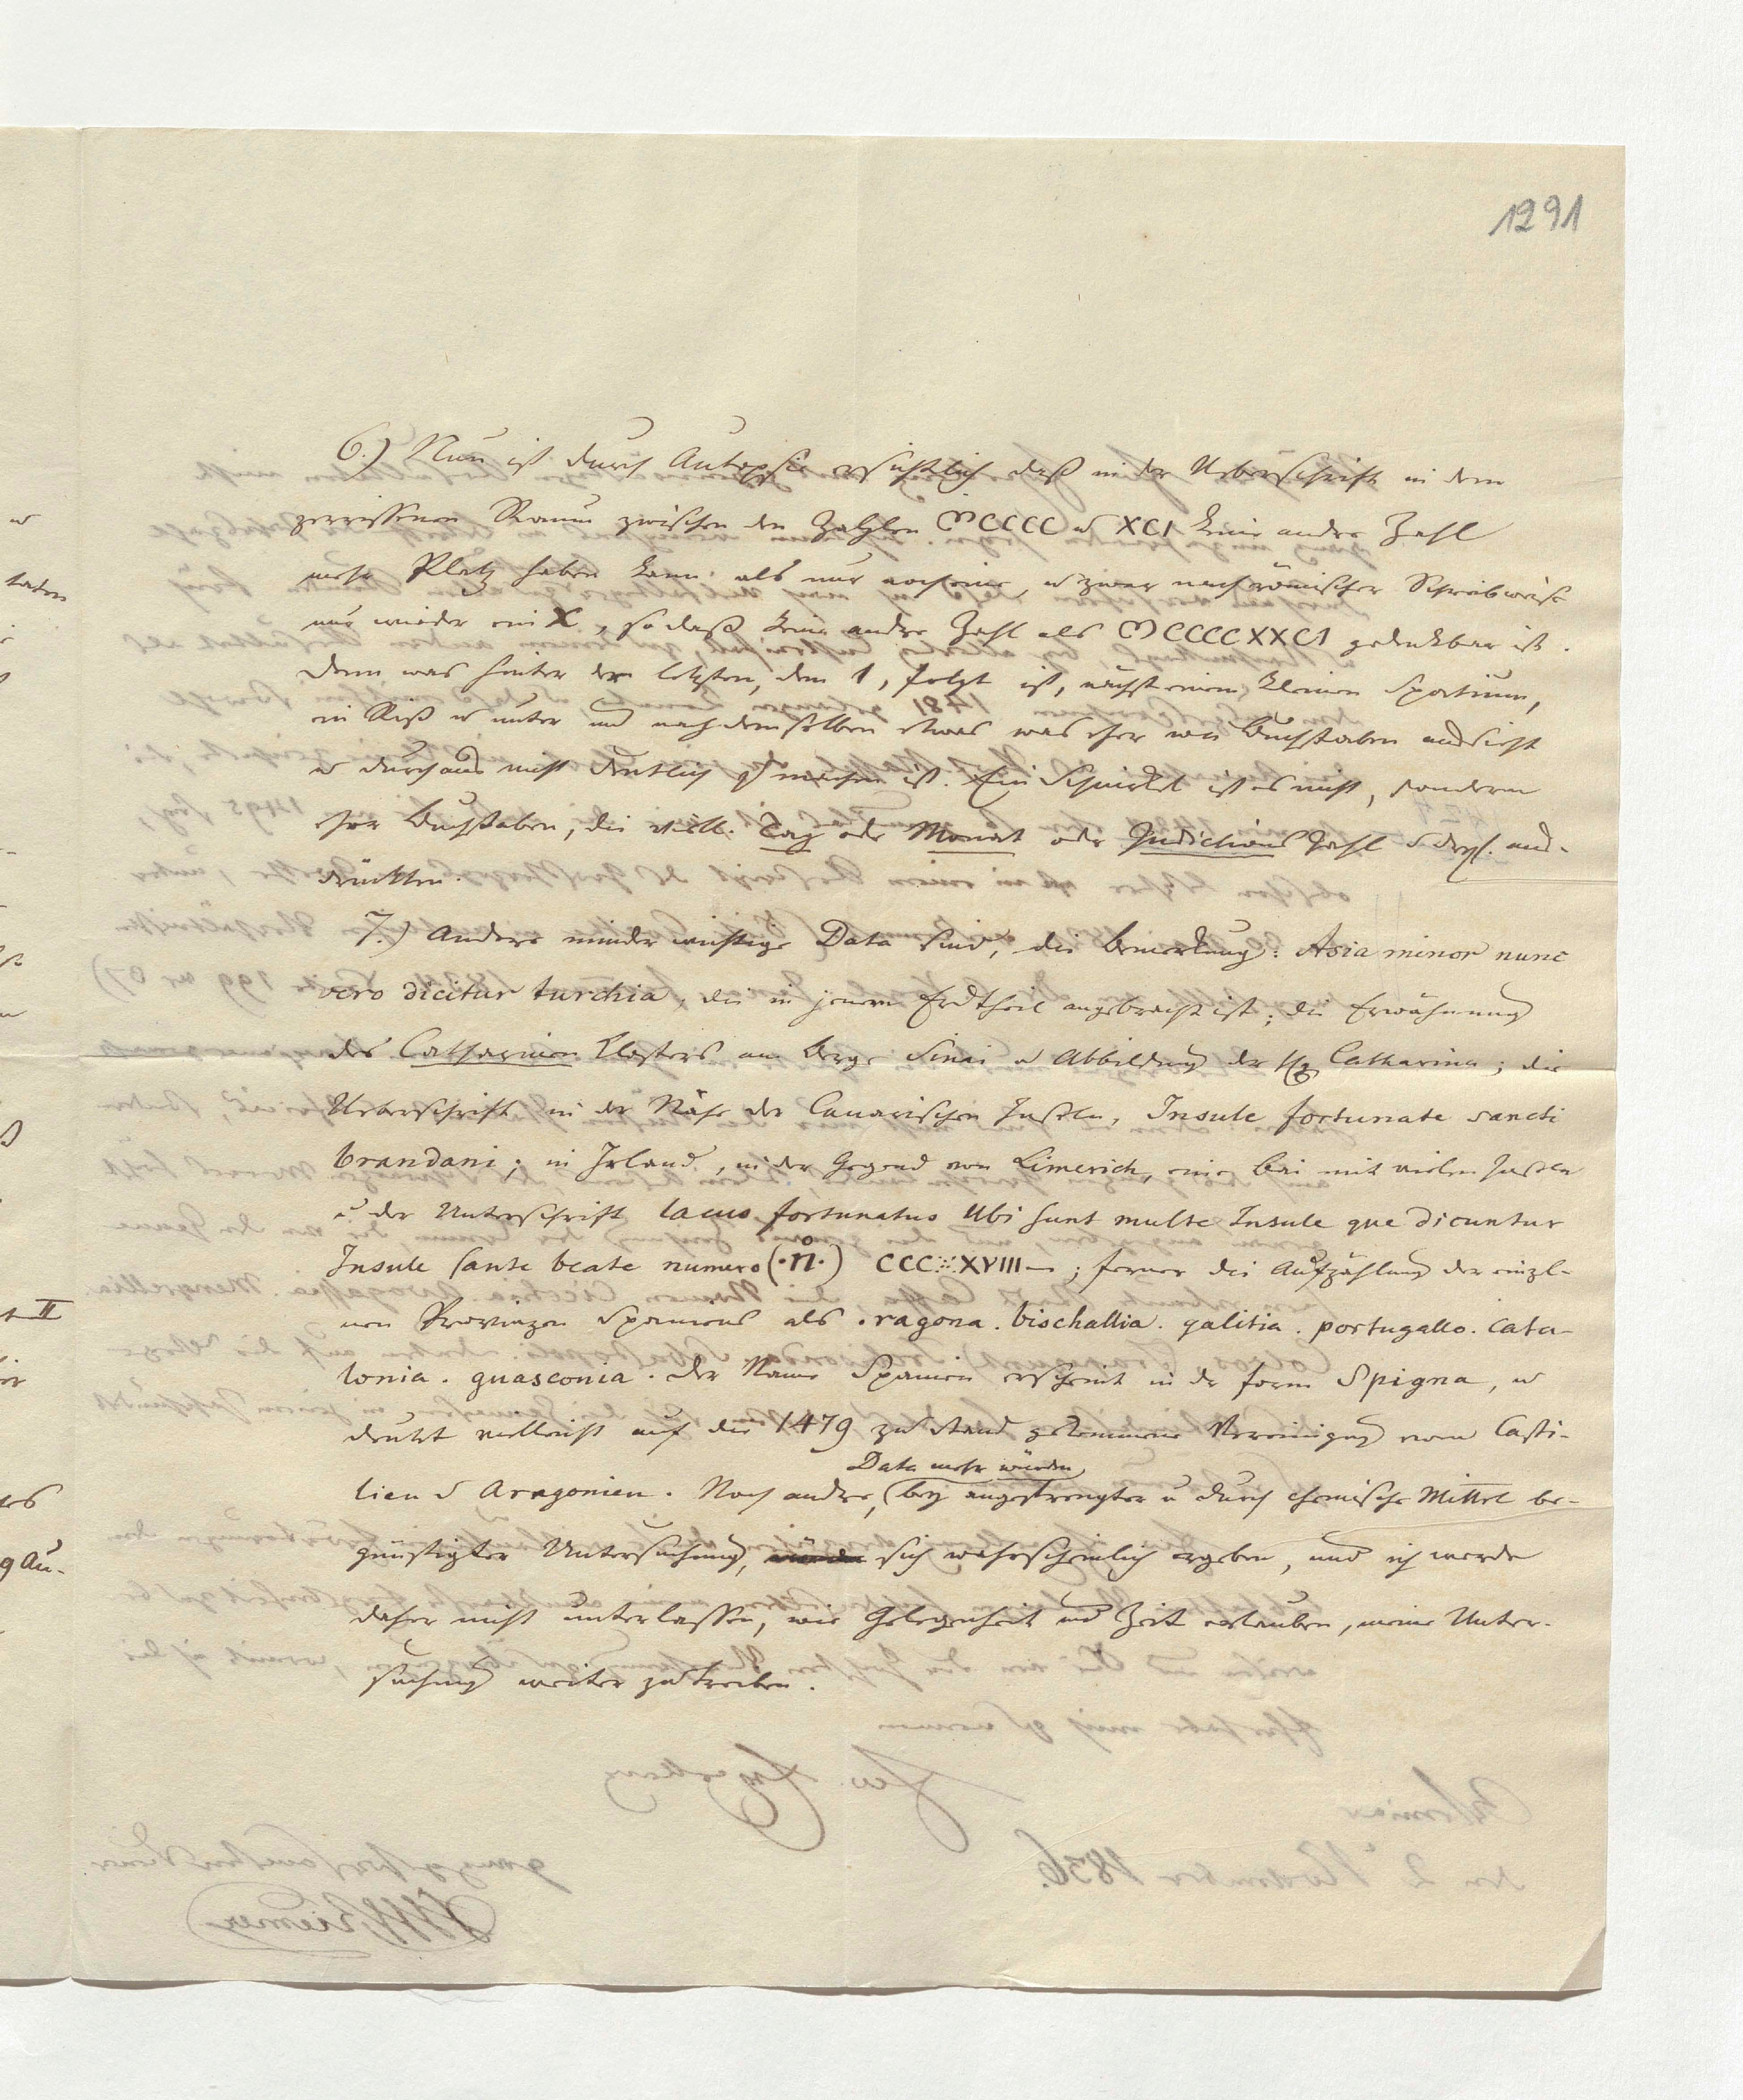 1291
6.) Nun ist durch Autopsie ersichtlich daß in der Ueberschrift in dem
zerrissenen Raum zwischen den Zahlen MCCCC u XCI keine andre Zahl
mehr Platz haben kann als nur noch eine, u zwar nach römischer Schreibweise
nur wieder ein X, so daß keine andre Zahl als MCCCCXXCI gedenkbar ist.
Denn was hinter der letzten, dem 1, folgt ist, nächst einem kleinen Spatium,
ein Riß u unter und nach demselben etwas was eher wie Buchstaben aussieht
u durchaus nicht deutlich zu machen ist. Ein Schnörkel ist es nicht, sondern
eher Buchstaben, die viell. Tag oder Monat oder Indictions Zahl u drgl. aus-
drückten.
7.) Andere minder wichtige Data sind, die Bemerkung: Asia minor nunc
vero dicitur turchia, die in jenem Erdtheil angebracht ist; die Erwähnung
des Catharinen Klosters am Berge Sinai u Abbildung der Catharina; die
Ueberschrift in der Nähe der Canarischen Inseln, Insule fortunate sancti
brandani; in Irland, in der Gegend von Limerich, eine Bai mit vielen Inseln
u. der Unterschrift lacus fortunatus Ubi sunt multe Insule que dicuntur
Insule sante beate numero (·n̊·) CCC∴XVIII—; ferner die Aufzählung der einzel-
nen Provinzen Spaniens als .ragona. bischallia. galitia. portugallo. cata-
lonia. guasconia. Der Name Spanien erscheint in der Form Spigna, u
deutet vielleicht auf die 1479 zu Stand gekommene Vereinigung von Casti-
Data mehr würden
lien u Aragonien. Noch andre, (bey angestrengter u durch chemische Mittel be-
günstigter Untersuchung, würden sich wahrscheinlich ergeben, und ich werde
daher nicht unterlassen, wie Gelegenheit und Zeit erlauben, meine Unter-
suchung weiter zu treiben.